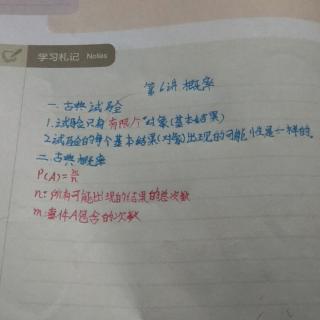 学习札记 Notes
第6讲 概率
一.古典试验
1.试验只有有限个对象(基本结果)
2.试验的每个基本结果(对象)出现的可能性是一样的.
二.古典概率
P(A)=m/n
n:所有可能出现的结果的总次数
m:事件A包含的次数